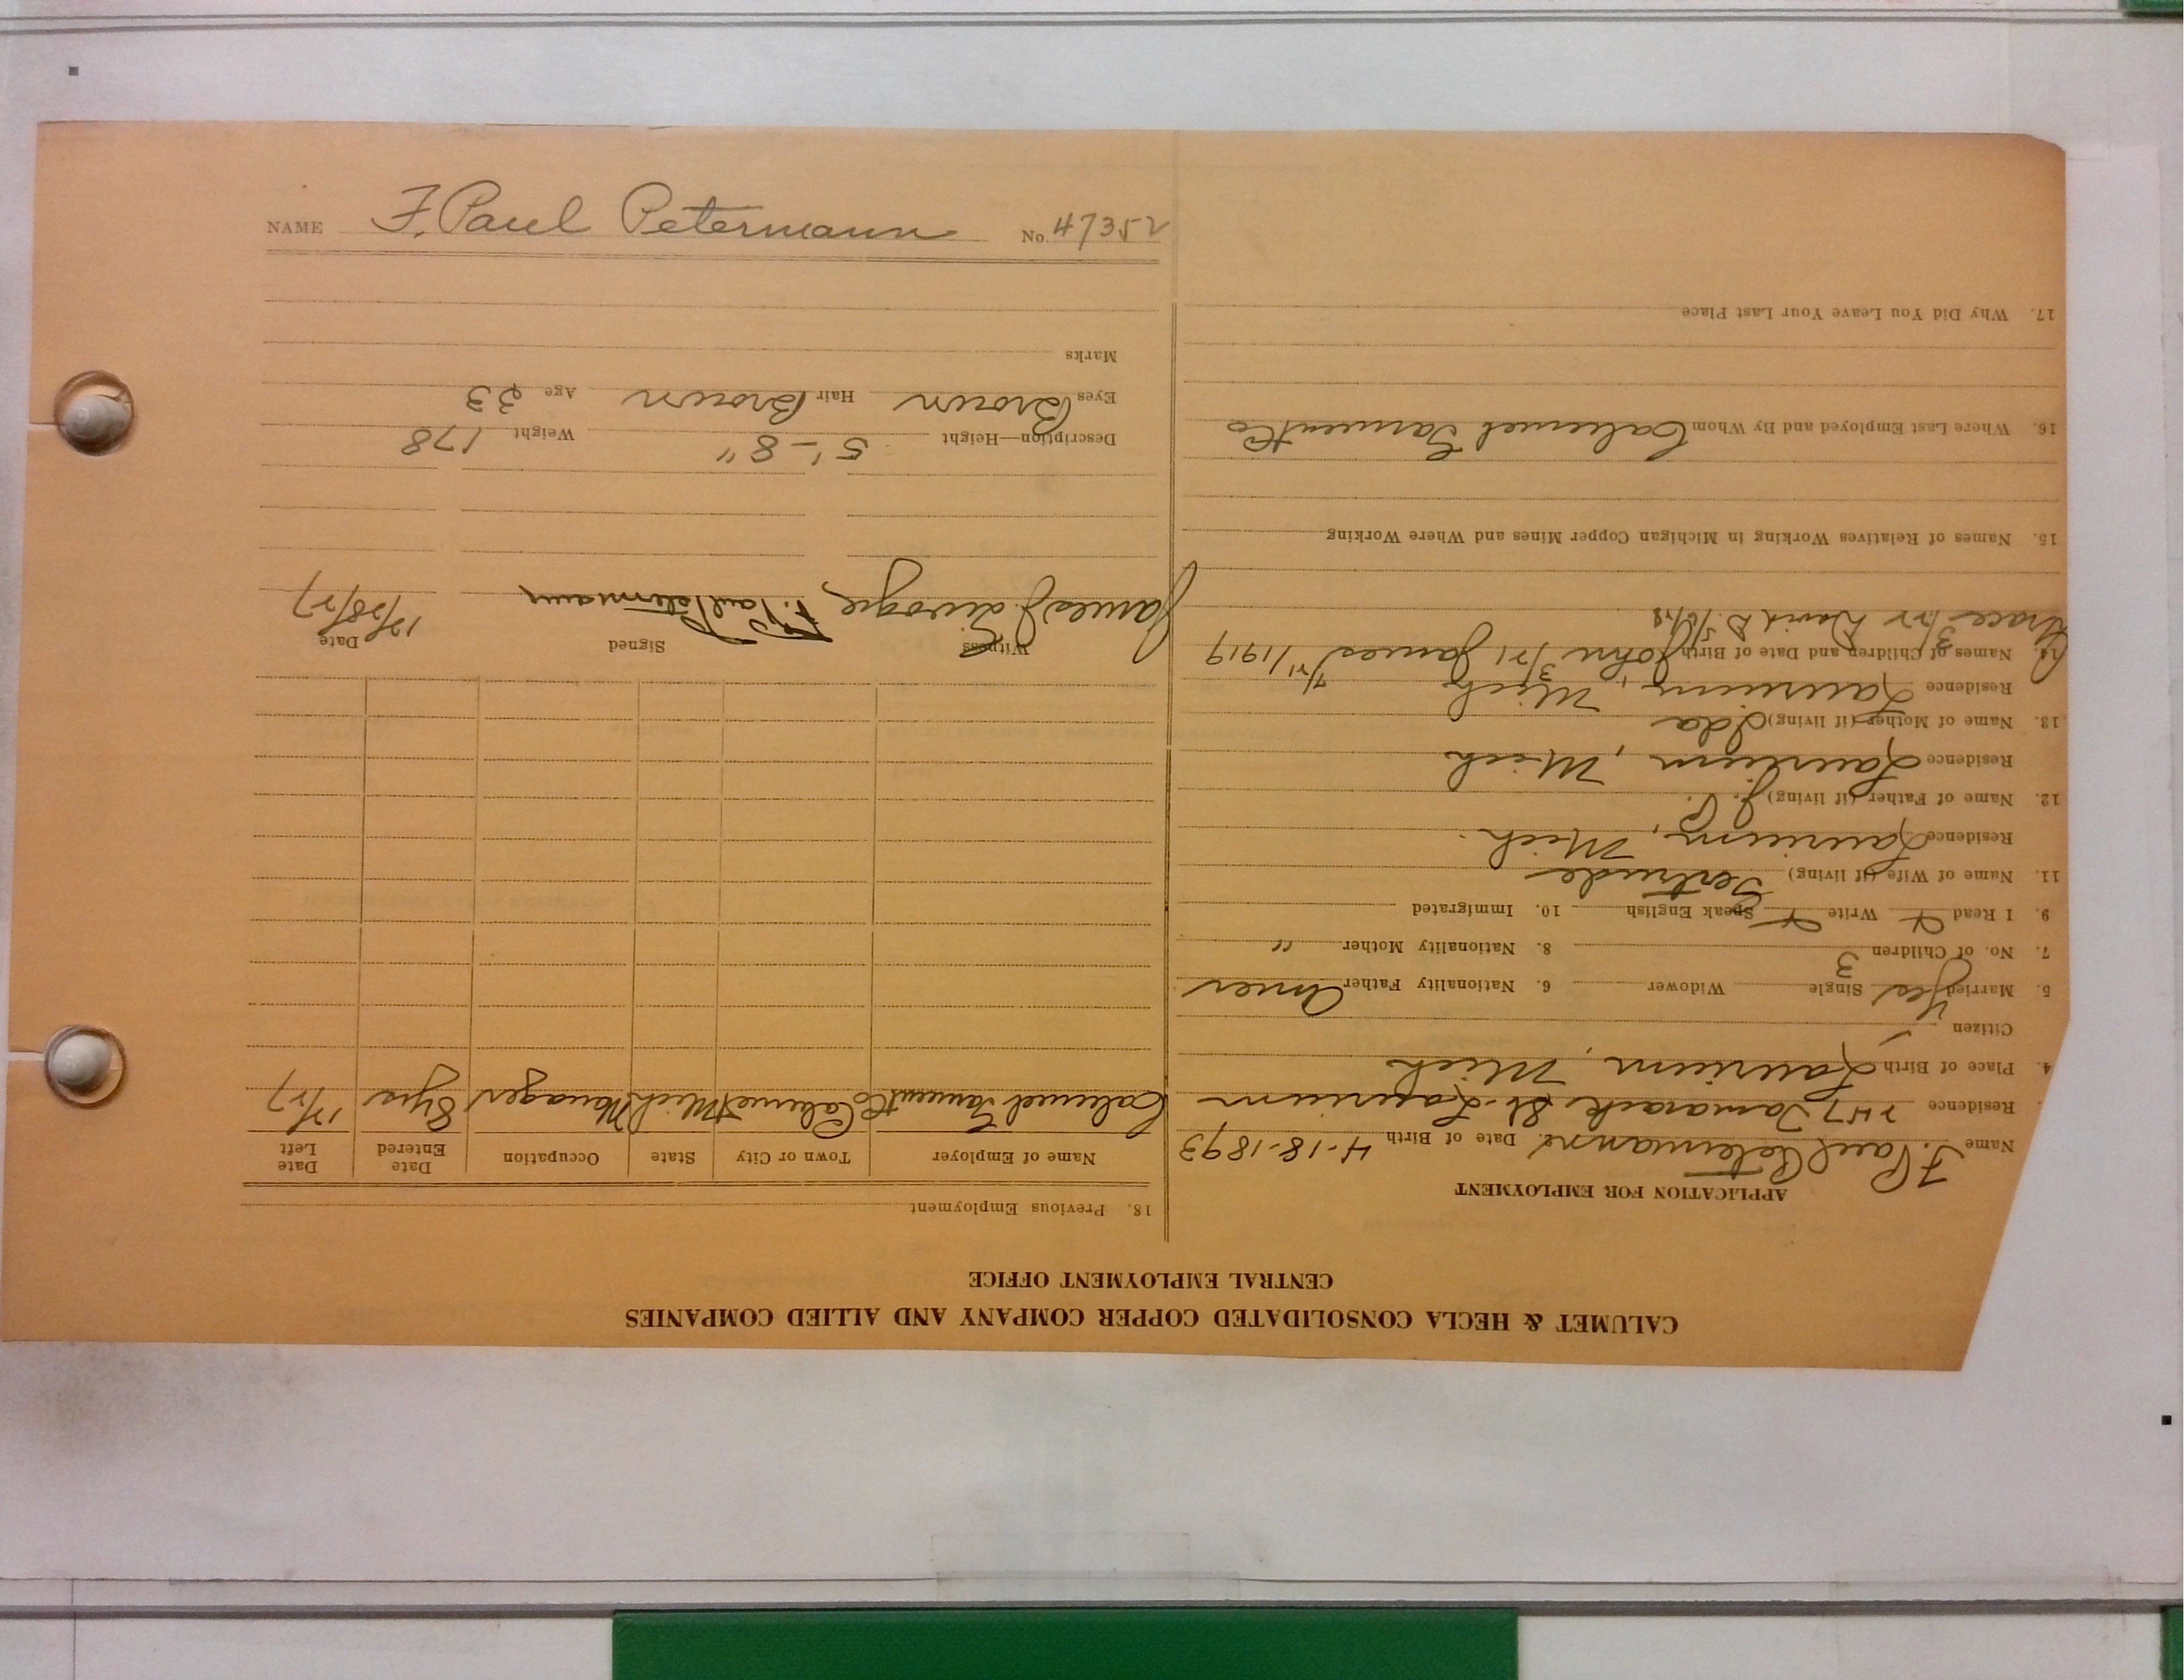 NAME F. Paul Petermann No. 47352
CALUMET & HECLA CONSOLIDATED COPPER COMPANY AND ALLIED COMPANIES
CENTRAL EMPLOYMENT OFFICE
APPLICATION FOR EMPLOYMENT
Name F. Paul Petermann Date of Birth 4-18-1893
Residence 247 Tamarack St. Laurium
4. Place of Birth Laurium, Mich
Citizen
5. Married Yes Single Widower 6. Nationality Father Amer
7. No. of Children 3 8. Nationality Mother "
9. I Read Write Speak English 10. Immigrated
11. Name of Wife (if living) Gertrude
Residence Laurium, Mich.
12. Name of Father (if living) J. P.
Residence Laurium, Mich
13. Name of Mother (if living) Ida
Residence Laurium, Mich
14. Names of Children and Date of Birth John 3/21 James 7/21/1919
Grace 3/22 David D. 5/6/28
15. Names of Relatives Working in Michigan Copper Mines and Where Working
16. Where Last Employed and By Whom Calumet Garment Co
17. Why Did You Leave Your Last Place
18. Previous Employment
Name of Employer Town or City State Occupation Date Entered Date Left
Calumet Garment Co Calumet Mich Manager 8 yrs 12/27
Witness Signed Date
James J. F. Paul Petermann 12/28/27
Description—Height 5'-8" Weight 178
Eyes Brown Hair Brown Age 33
Marks